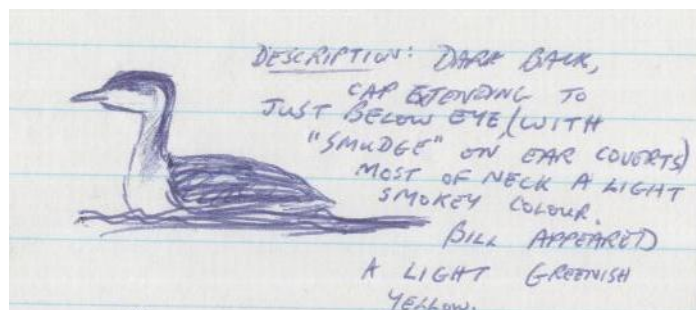 DESCRIPTION: DARK BACK,
CAP EXTENDING TO
JUST BELOW EYE (WITH
"SMUDGE" ON EAR COVERTS)
MOST OF NECK A LIGHT
SMOKEY COLOUR.
BILL APPEARED
A LIGHT GREENISH
YELLOW.